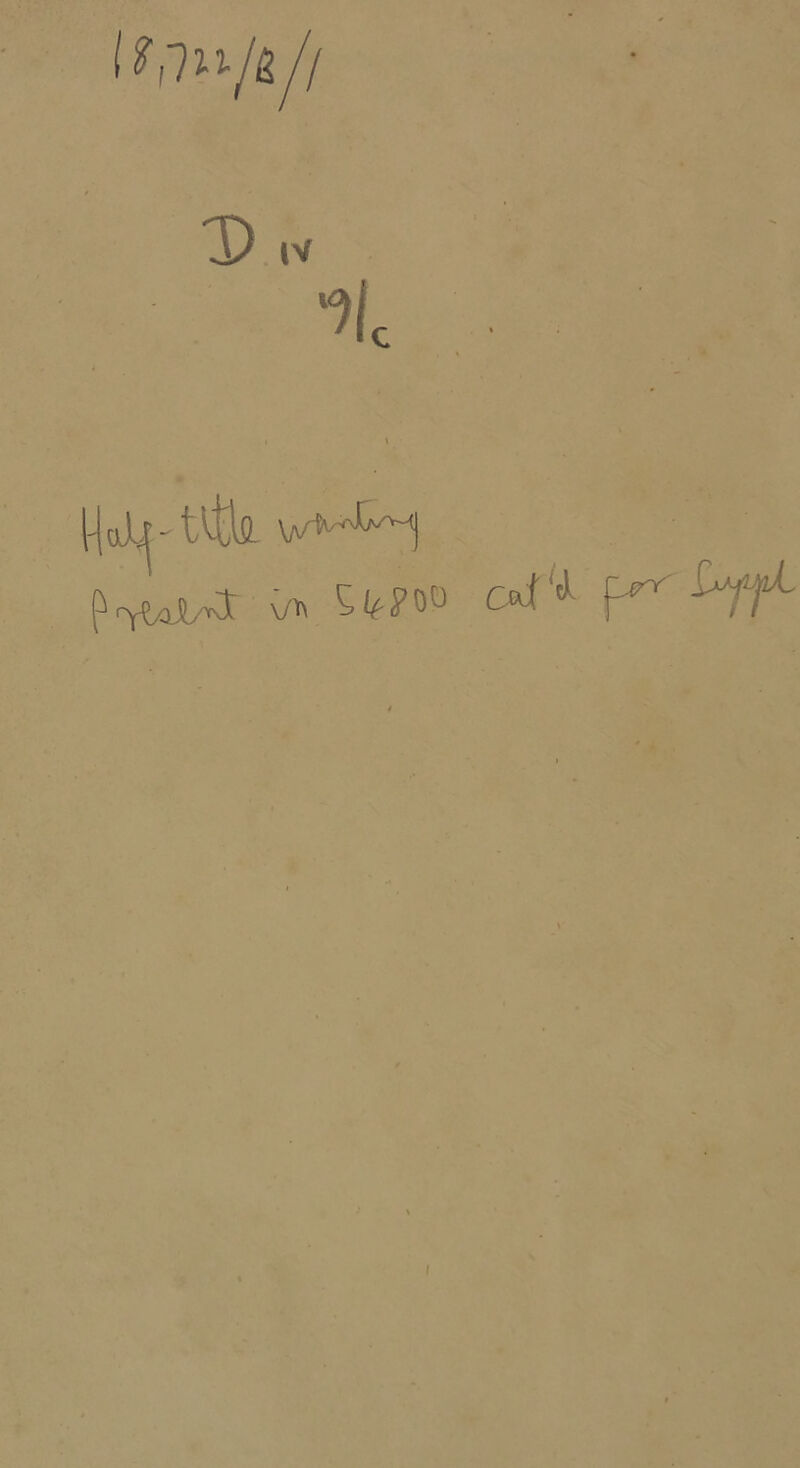 18,722/B//
D iv
9/c
Half-title wanting
present in 54800 cat'd for Suppl